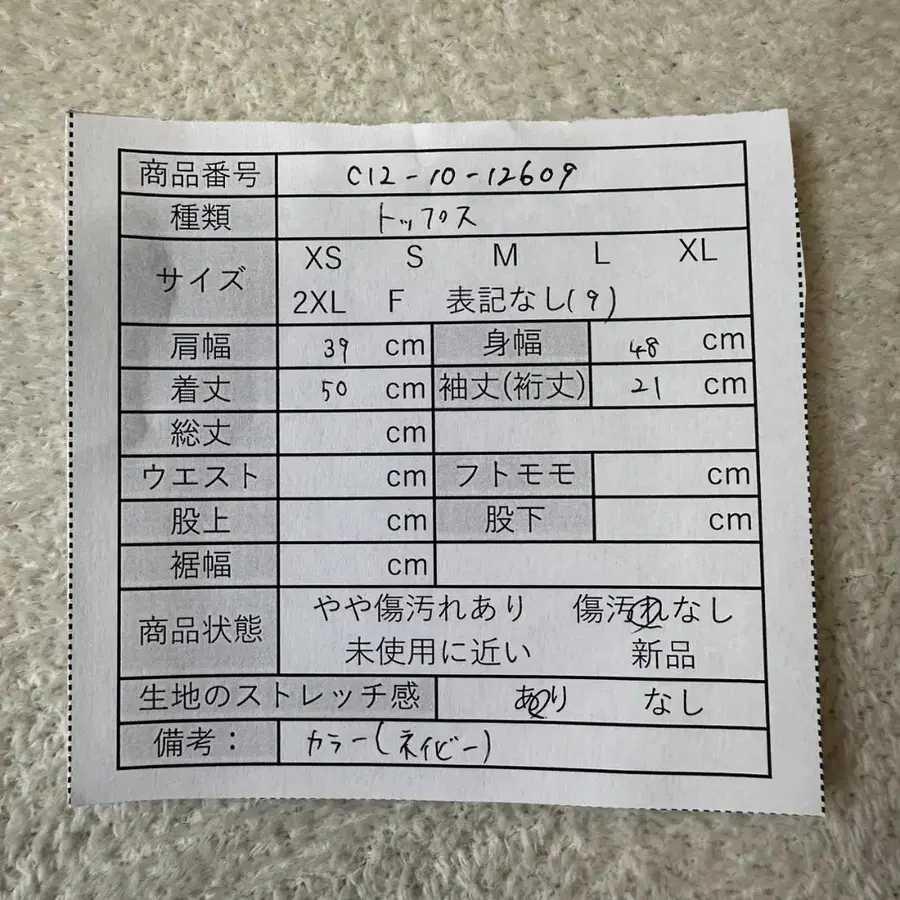 商品番号 C12-10-12609
種類 トップス
サイズ XS S M L XL
2XL F 表記なし(9)
肩幅 39 cm 身幅 48 cm
着丈 50 cm 袖丈(裄丈) 21 cm
総丈 cm
ウエスト cm フトモモ cm
股上 cm 股下 cm
裾幅 cm
商品状態 やや傷汚れあり 傷汚れなし
未使用に近い 新品
生地のストレッチ感 あり なし
備考： カラー(ネイビー)